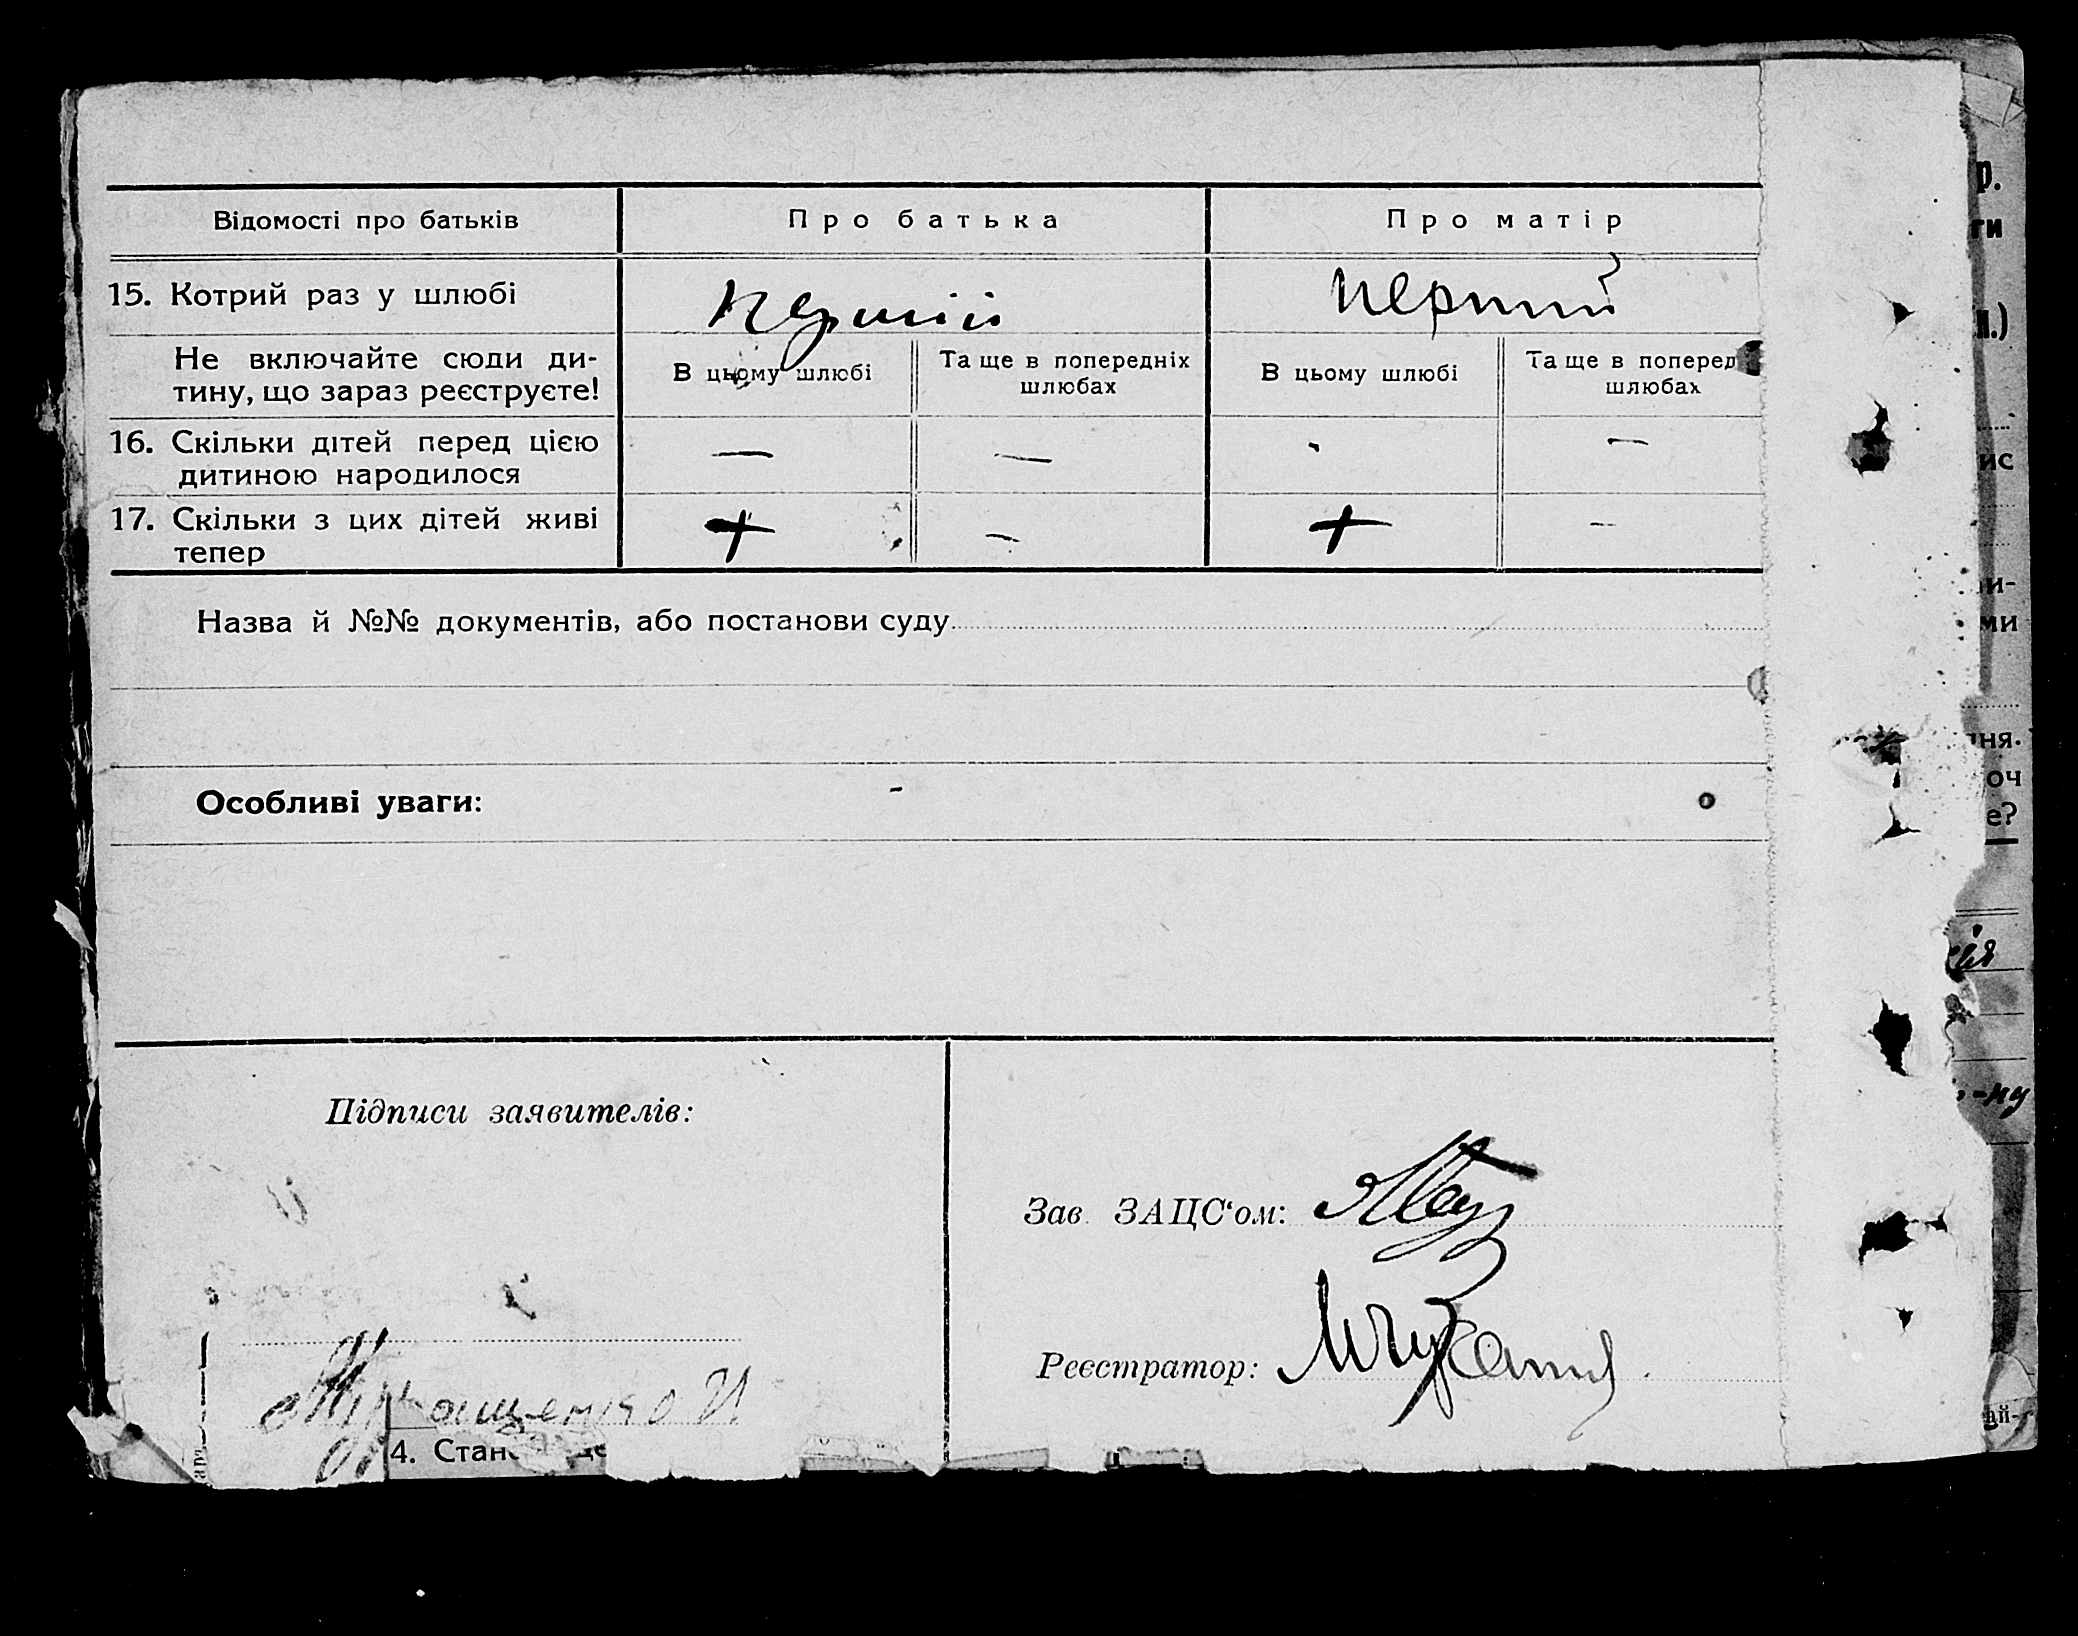 Відомості про батьків
Про батька
Про матір
15. Котрий раз у шлюбі
перший
перший
Не включайте сюди ди-
тину, що зараз реєструєте!
В цьому шлюбі
Та ще в попередніх
шлюбах
В цьому шлюбі
Та ще в поперед
шлюбах
16. Скільки дітей перед цією
дитиною народилося
— —
—
17. Скільки з цих дітей живі
тепер
+ —
+ —
Назва й №№ документів, або постанови суду
Особливі уваги: -
Підписи заявителів:
Зав. ЗАЦС‘ом:
Реєстратор:
4. Стан